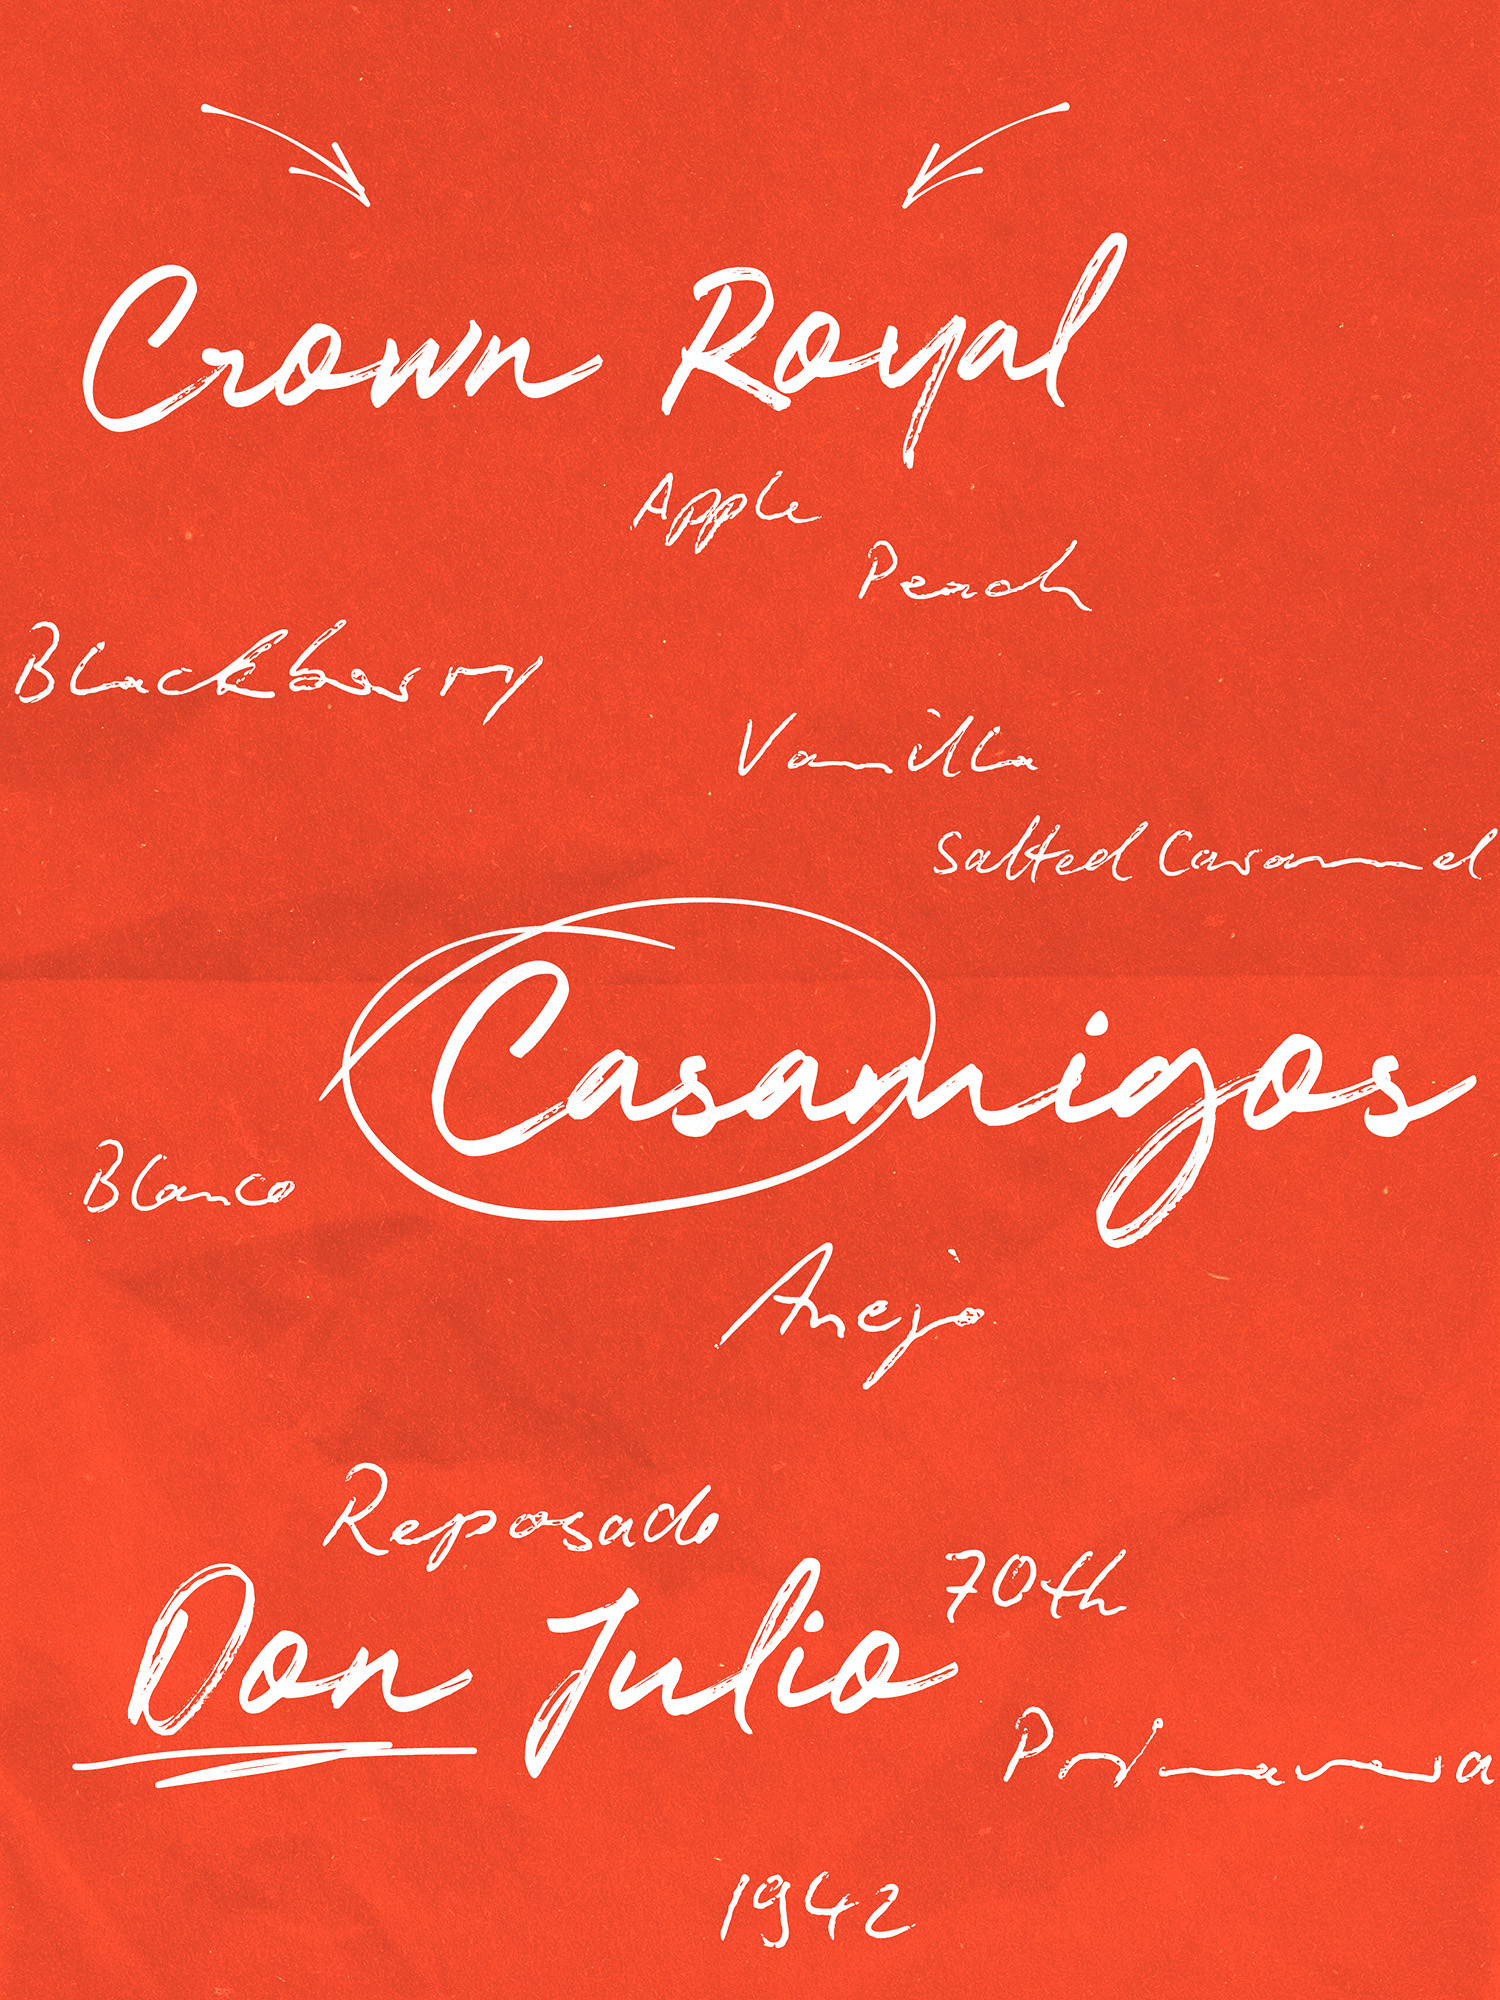 Crown Royal
Apple
Peach
Blackberry
Vanilla
Salted Caramel
Casamigos
Blanco
Anejo
Reposado
70th
Don Julio
Primavera
1942